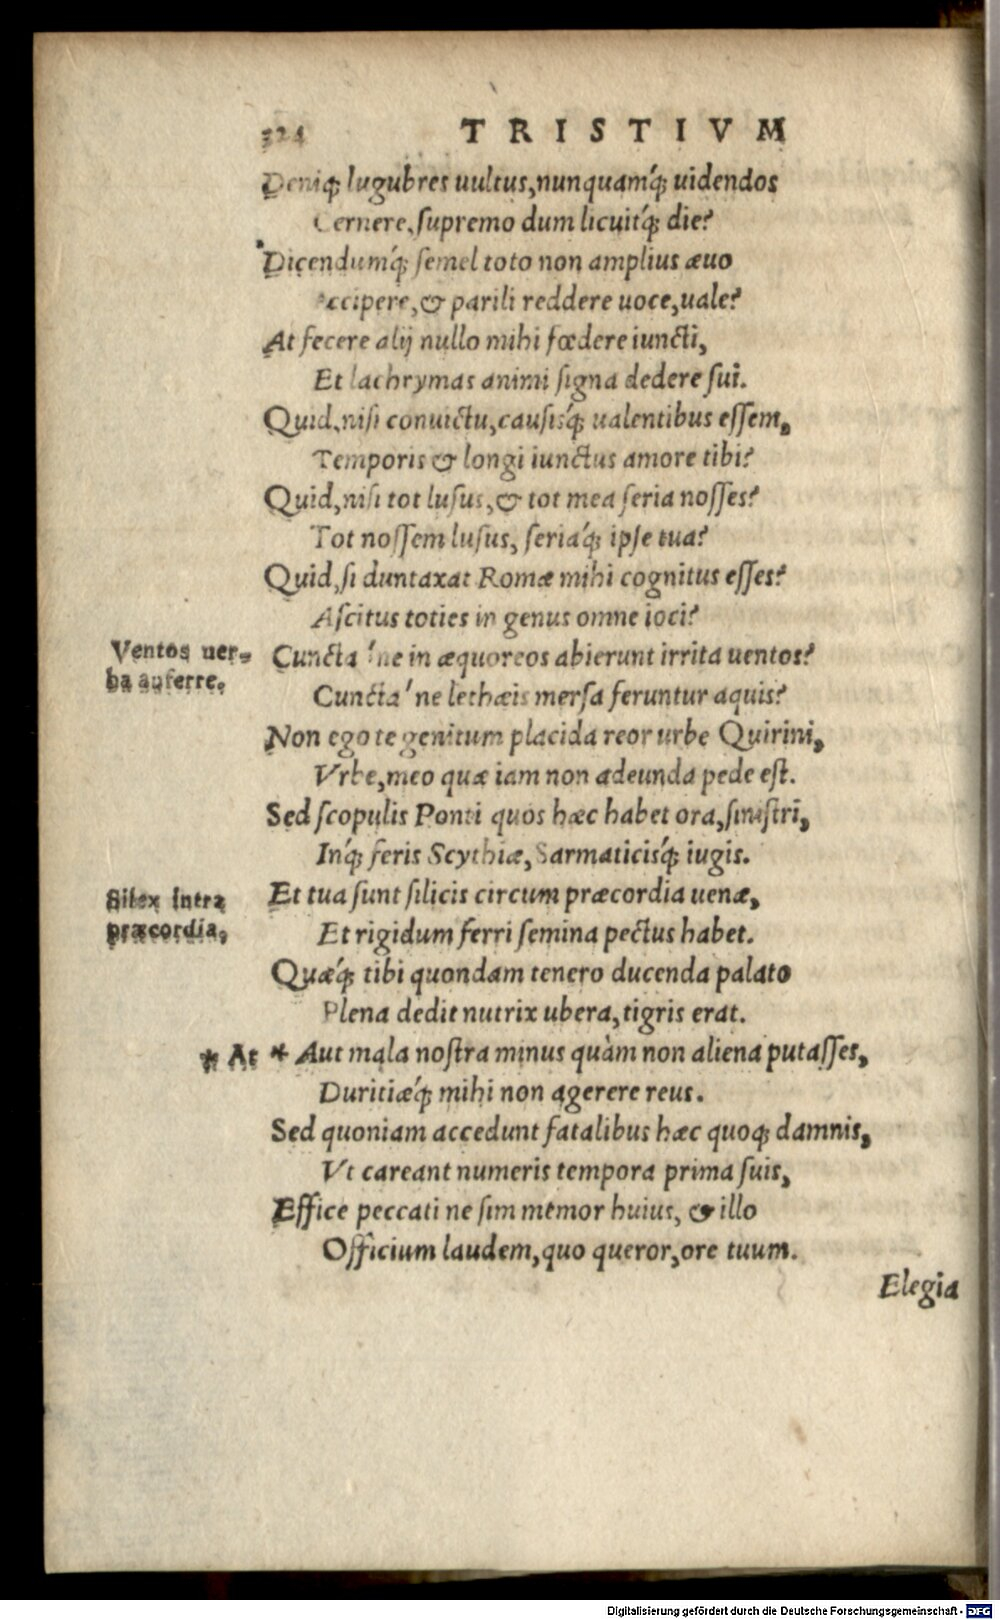 324 TRISTIVM
Deniq; lugubres uultus, nunquamq́; uidendos
Cernere, supremo dum licuitq́; die?
Dicendumq́; semel toto non amplius æuo
Accipere, & parili reddere uoce, uale?
At fecere alij nullo mihi fœdere iuncti,
Et lachrymas animi signa dedere sui.
Quid, nisi conuictu, causisq́; ualentibus essem,
Temporis & longi iunctus amore tibi?
Quid, nisi tot lusus, & tot mea seria nosses?
Tot nossem lusus, seriaq́; ipse tua?
Quid, si duntaxat Romæ mihi cognitus esses?
Ascitus toties in genus omne ioci?
Ventos uer-
ba auferre.
Cuncta 'ne in æquoreos abierunt irrita uentos?
Cuncta 'ne lethæis mersa feruntur aquis?
Non ego te genitum placida reor urbe Quirini,
Vrbe, meo quæ iam non adeunda pede est.
Sed scopulis Ponti quos hæc habet ora, sinistri,
Inq́; feris Scythiæ, Sarmaticisq́; iugis.
Silex intra
præcordia,
Et tua sunt silicis circum præcordia uenæ,
Et rigidum ferri semina pectus habet.
Quæq́; tibi quondam tenero ducenda palato
Plena dedit nutrix ubera, tigris erat.
* At * Aut mala nostra minus quàm non aliena putasses,
Duritiæq́; mihi non agerere reus.
Sed quoniam accedunt fatalibus hæc quoq; damnis,
Vt careant numeris tempora prima suis,
Effice peccati ne sim memor huius, & illo
Officium laudem, quo queror, ore tuum.
Elegia
Digitalisierung gefördert durch die Deutsche Forschungsgemeinschaft - DFG